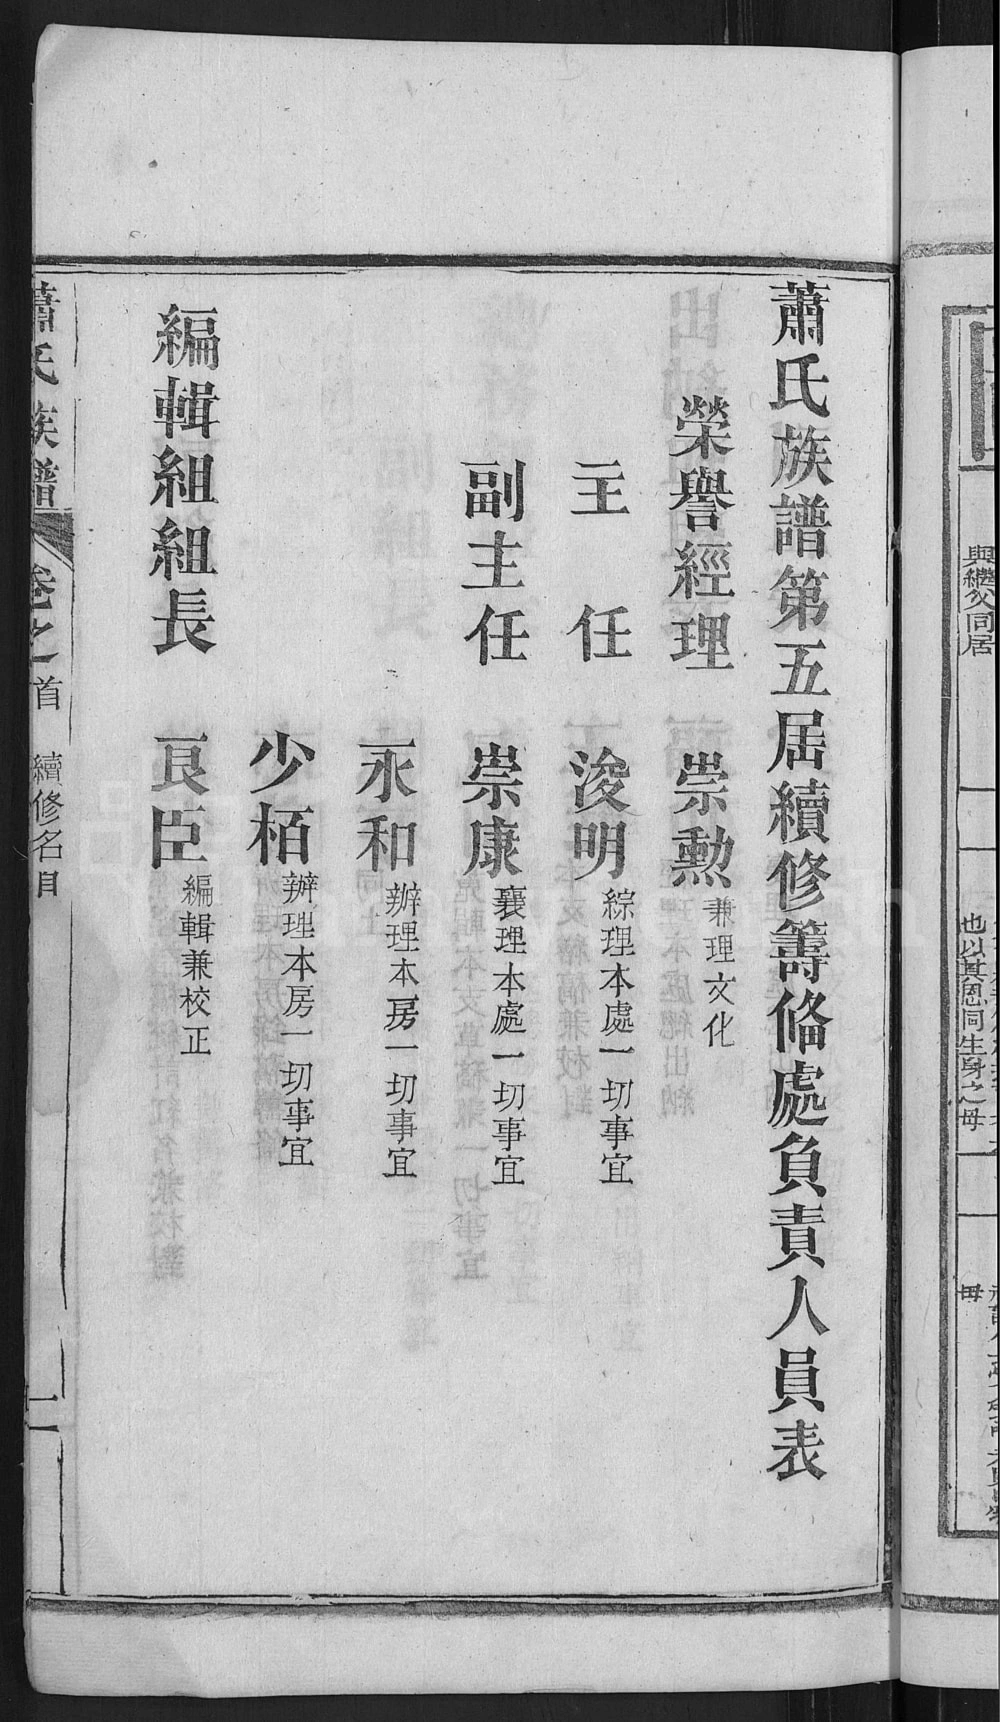 與繼父同居
也以其恩同生身之母
母
蕭氏族譜第五屆續修籌俻處負責人員表
榮譽經理 崇勲 兼理文化
主任 浚明 綜理本處一切事宜
副主任 崇康 襄理本處一切事宜
永和 辦理本房一切事宜
少栢 辦理本房一切事宜
編輯組組長 良臣 編輯兼校正
蕭氏族譜 卷之首 續修名目 二